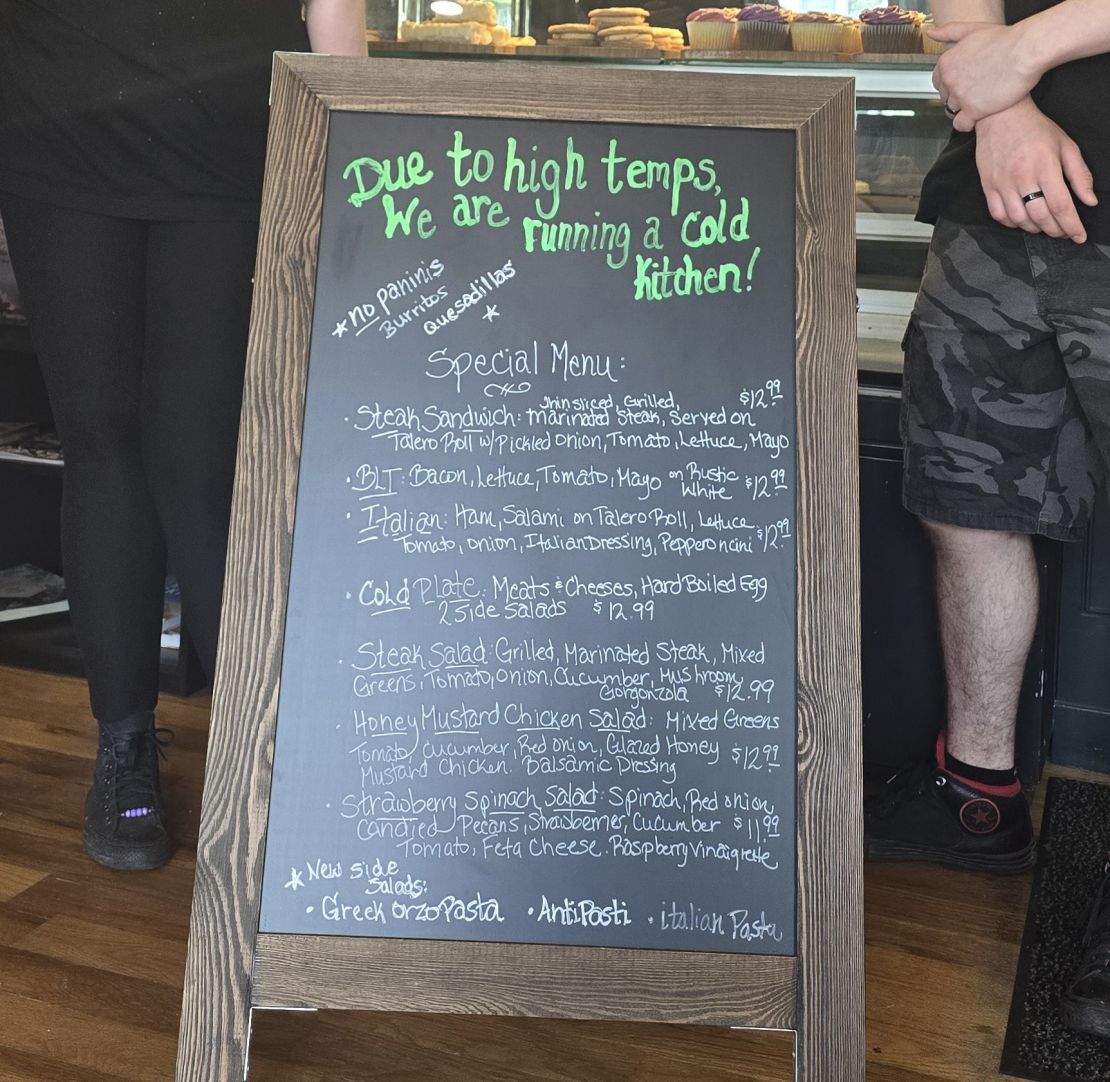 Due to high temps,
We are running a cold
kitchen!
* no paninis
Burritos
Quesadillas *
Special Menu:
• Steak Sandwich: Thin sliced, Grilled, $12.99
marinated steak, Served on
Talero Roll w/ Pickled onion, Tomato, Lettuce, Mayo
• BLT: Bacon, Lettuce, Tomato, Mayo on Rustic White $12.99
• Italian: Ham, Salami on Talero Roll, Lettuce
Tomato, onion, Italian Dressing, Pepperoncini $12.99
• Cold Plate: Meats & Cheeses, Hard Boiled Egg
2 Side Salads $12.99
• Steak Salad: Grilled, Marinated Steak, Mixed
Greens, Tomato, onion, Cucumber, Mushroom,
Gorgonzola $12.99
• Honey Mustard Chicken Salad: Mixed Greens
Tomato, cucumber, Red onion, Glazed Honey $12.99
Mustard Chicken. Balsamic Dressing
• Strawberry Spinach Salad: Spinach, Red onion,
Candied Pecans, Strawberries, Cucumber $11.99
Tomato, Feta Cheese. Raspberry Vinaigrette
* New side
Salads:
• Greek orzo Pasta • AntiPasti • italian Pasta